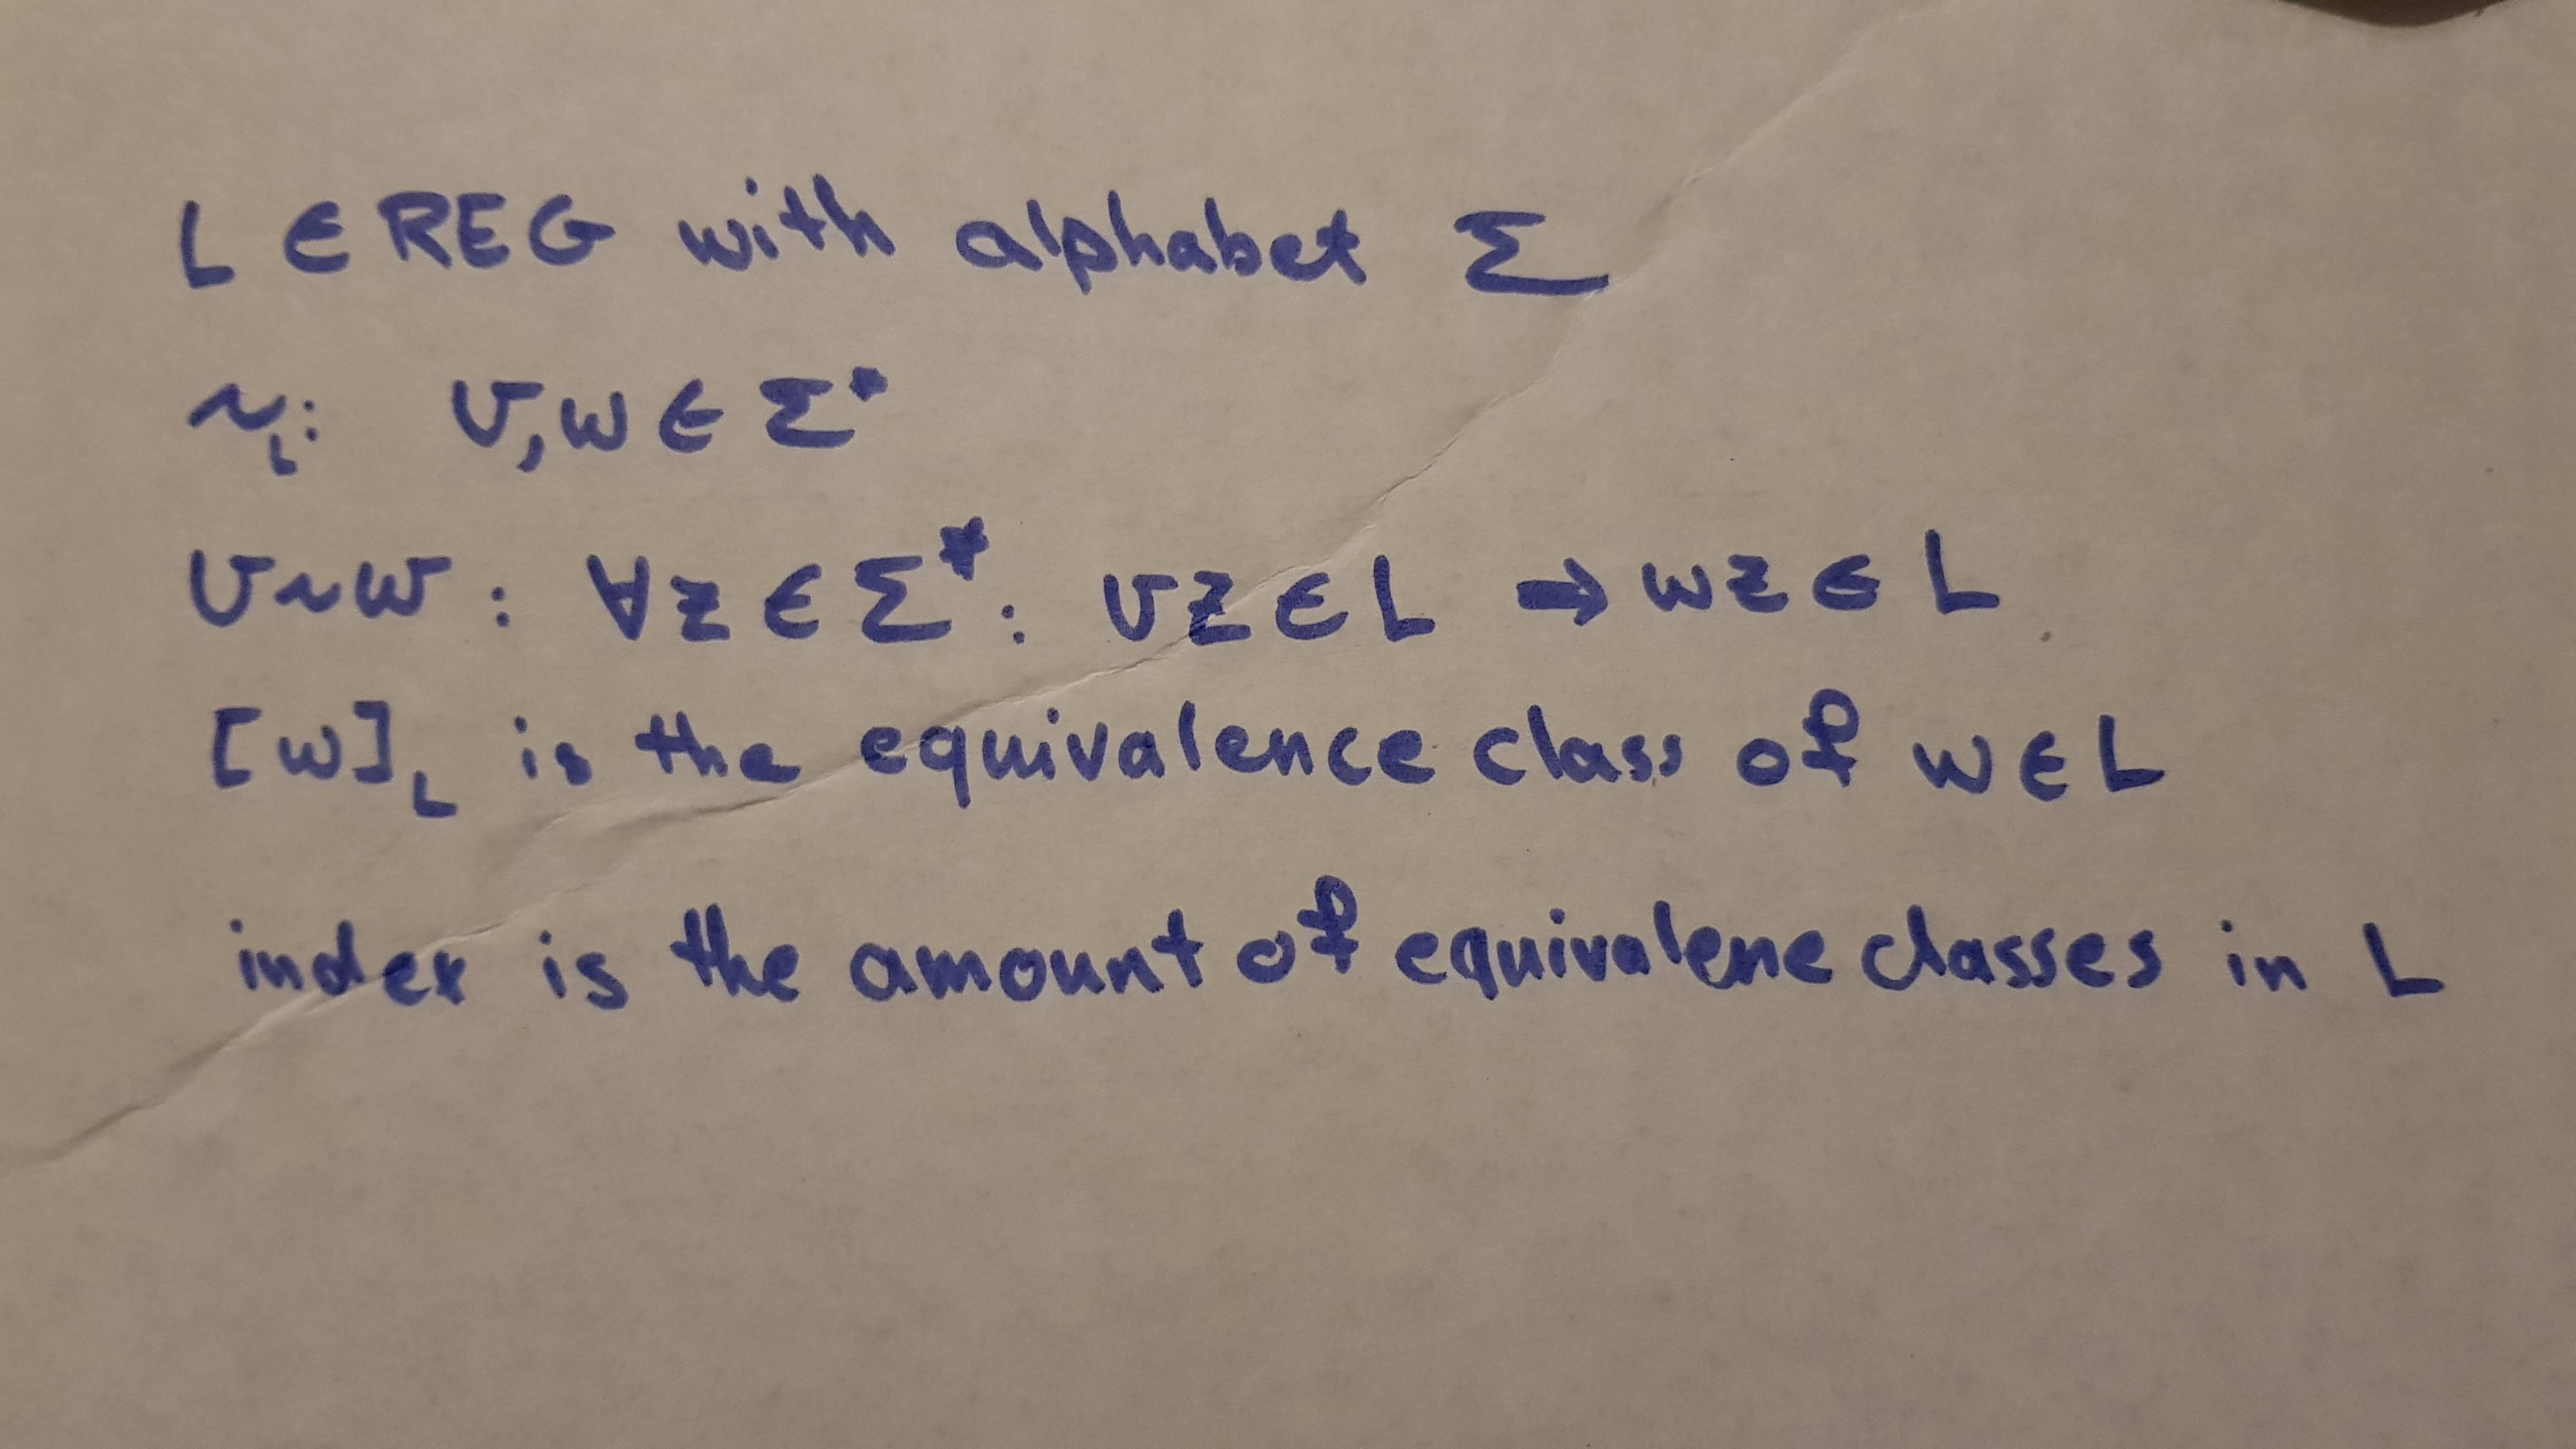 L ∈ REG with alphabet Σ
~L: v,w ∈ Σ*
v~w : ∀z ∈ Σ* : vz ∈ L → wz ∈ L
[w]L is the equivalence class of w ∈ L
index is the amount of equivalene classes in L